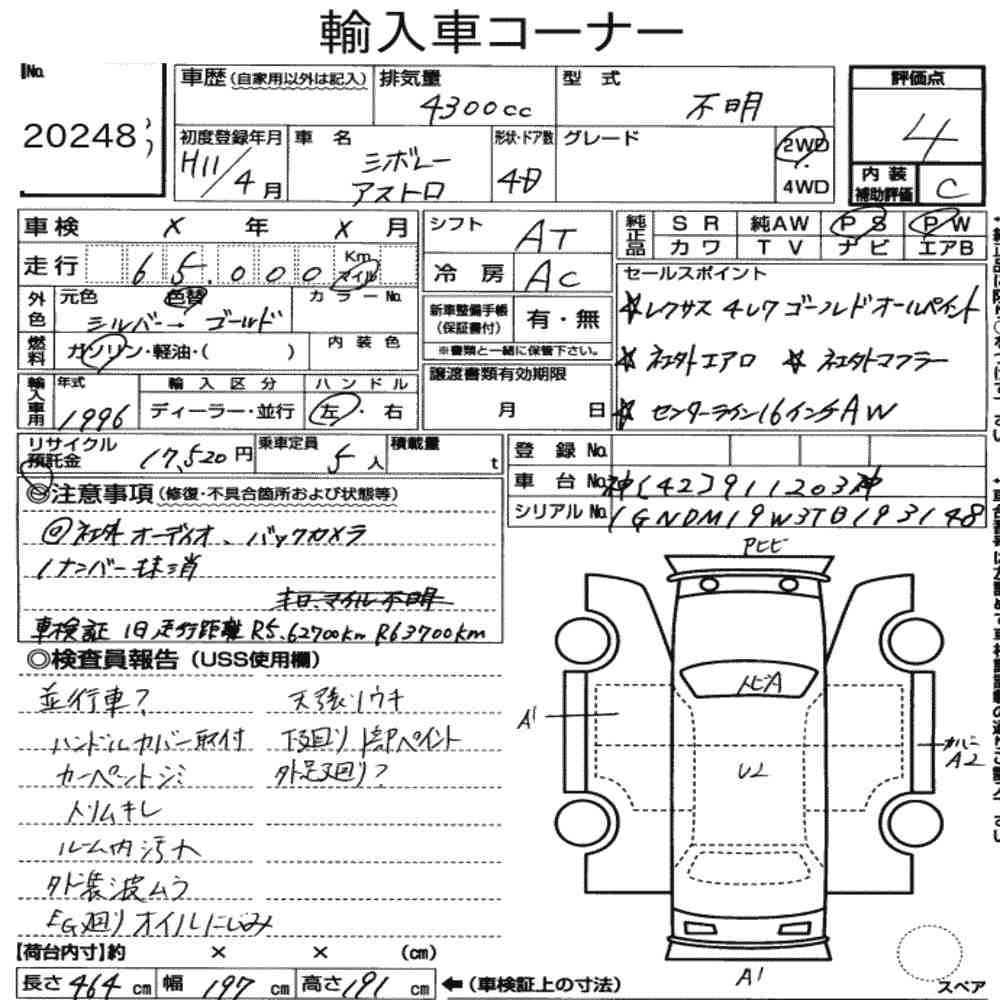 輸入車コーナー
No. 20248
車歴(自家用以外は記入)
排気量 4300cc
型式 不明
評価点 4
初度登録年月 H11/4月
車名 シボレー アストロ
形状・ドア数 4D
グレード
2WD
4WD
内装補助評価 C
車検 X 年 X 月
シフト AT
純正品 SR 純AW PS PW
カワ TV ナビ エアB
走行 65,000 Km マイル
冷房 AC
セールスポイント
外色 元色 色替 カラーNo.
シルバー→ゴールド
新車整備手帳(保証書付) 有・無
※書類と一緒に保管下さい。
☆レクサス 4Lワ ゴールドオールペイント
燃料 ガソリン・軽油・( )
内装色
☆社外エアロ ☆社外マフラー
輸入車用 年式 1996
輸入区分 ディーラー・並行
ハンドル 左・右
譲渡書類有効期限 月 日
☆センターライン16インチAW
リサイクル預託金 17,520円
乗車定員 5人
積載量 t
登録No.
車台No. 神[42]911203神
シリアルNo. 1GNDM19W3TB193148
◎注意事項(修復・不具合箇所および状態等)
@社外オーディオ、バックカメラ
1ナンバー抹消
キロ、マイル不明
車検証 旧走行距離 R5.62700km R63700km
◎検査員報告(USS使用欄)
並行車?
天張りウキ
ハンドルカバー取付
下回り1部ペイント
カーペットシミ
外足廻り?
トリムキレ
ルーム内汚れ
外装波ムラ
EG廻りオイルにじみ
Pヒビ
トビA
A1
カバー A2
U2
A1
スペア
【荷台内寸】約 × × (cm)
長さ 464 cm 幅 197 cm 高さ 191 cm ←(車検証上の寸法)